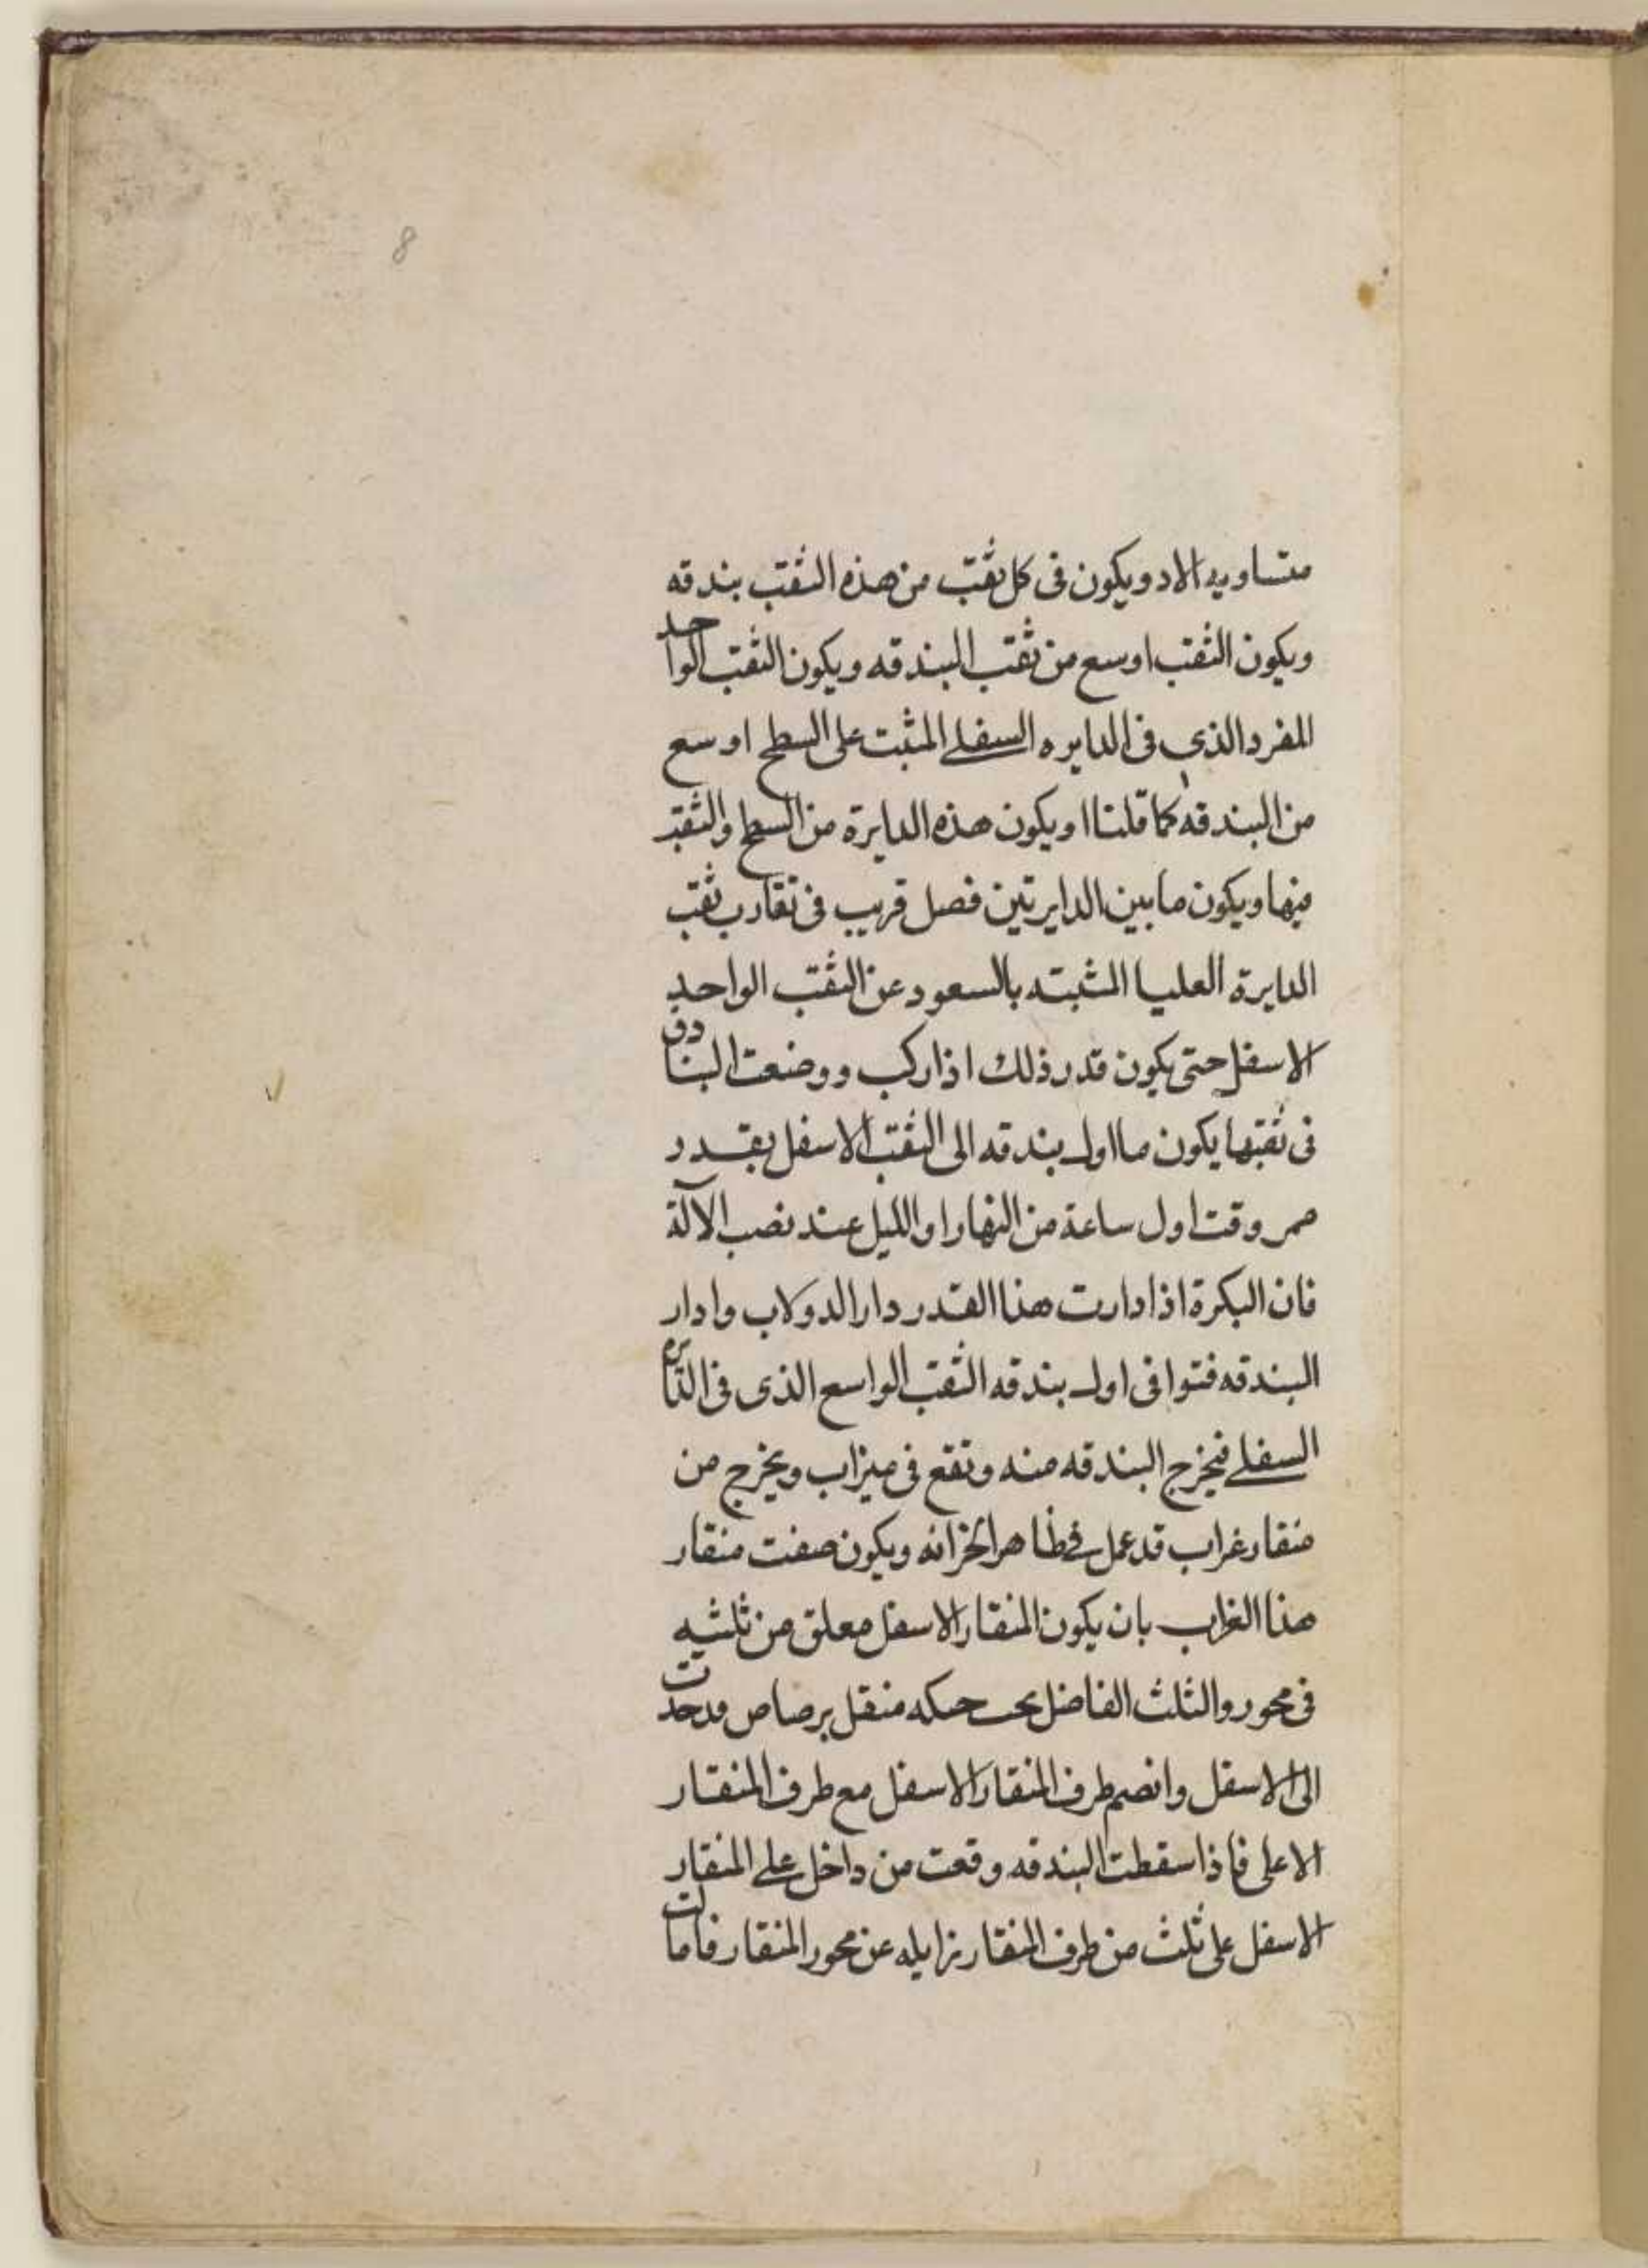 8
متساويه الاد ويكون فى كل ثقب من هذه الثقب بندقه
ويكون الثقب اوسع من ثقب البندقه ويكون الثقب الواحد
المفرد الذى فى الدايره السفلى المثبت على السطح اوسع
من البندقه كما قلنا ويكون هذه الدايرة من السطح والثقب
فيها ويكون ما بين الدايرتين فصل قريب فى تقارب ثقب
الدايرة العليا المثبته بالسعود عن الثقب الواحد
الاسفل حتى يكون قدر ذلك اذا ركب ووضعت البنادق
فى ثقبها يكون ما اول بندقه الى الثقب الاسفل بقدر
ممر وقت اول ساعة من النهار او الليل عند نصب الآلة
فان البكرة اذا دارت هذا القدر دار الدولاب وادار
البندقه فتوافى اول بندقه الثقب الواسع الذى فى الدايره
السفلى فيخرج البندقه منه وتقع فى ميزاب ويخرج من
منقار غراب قد عمل فى ظاهر الخزانه ويكون صفت منقار
هذا الغراب بان يكون المنقار الاسفل معلق من ثلثيه
فى محور والثلث الفاضل حنكه مثقل برصاص
الى الاسفل وانضم طرف المنقار الاسفل مع طرف المنقار
الاعلى فاذا سقطت البندقه وقعت من داخل على المنقار
الاسفل على ثلث من طرف المنقار نزايله عن محور المنقار فامالت